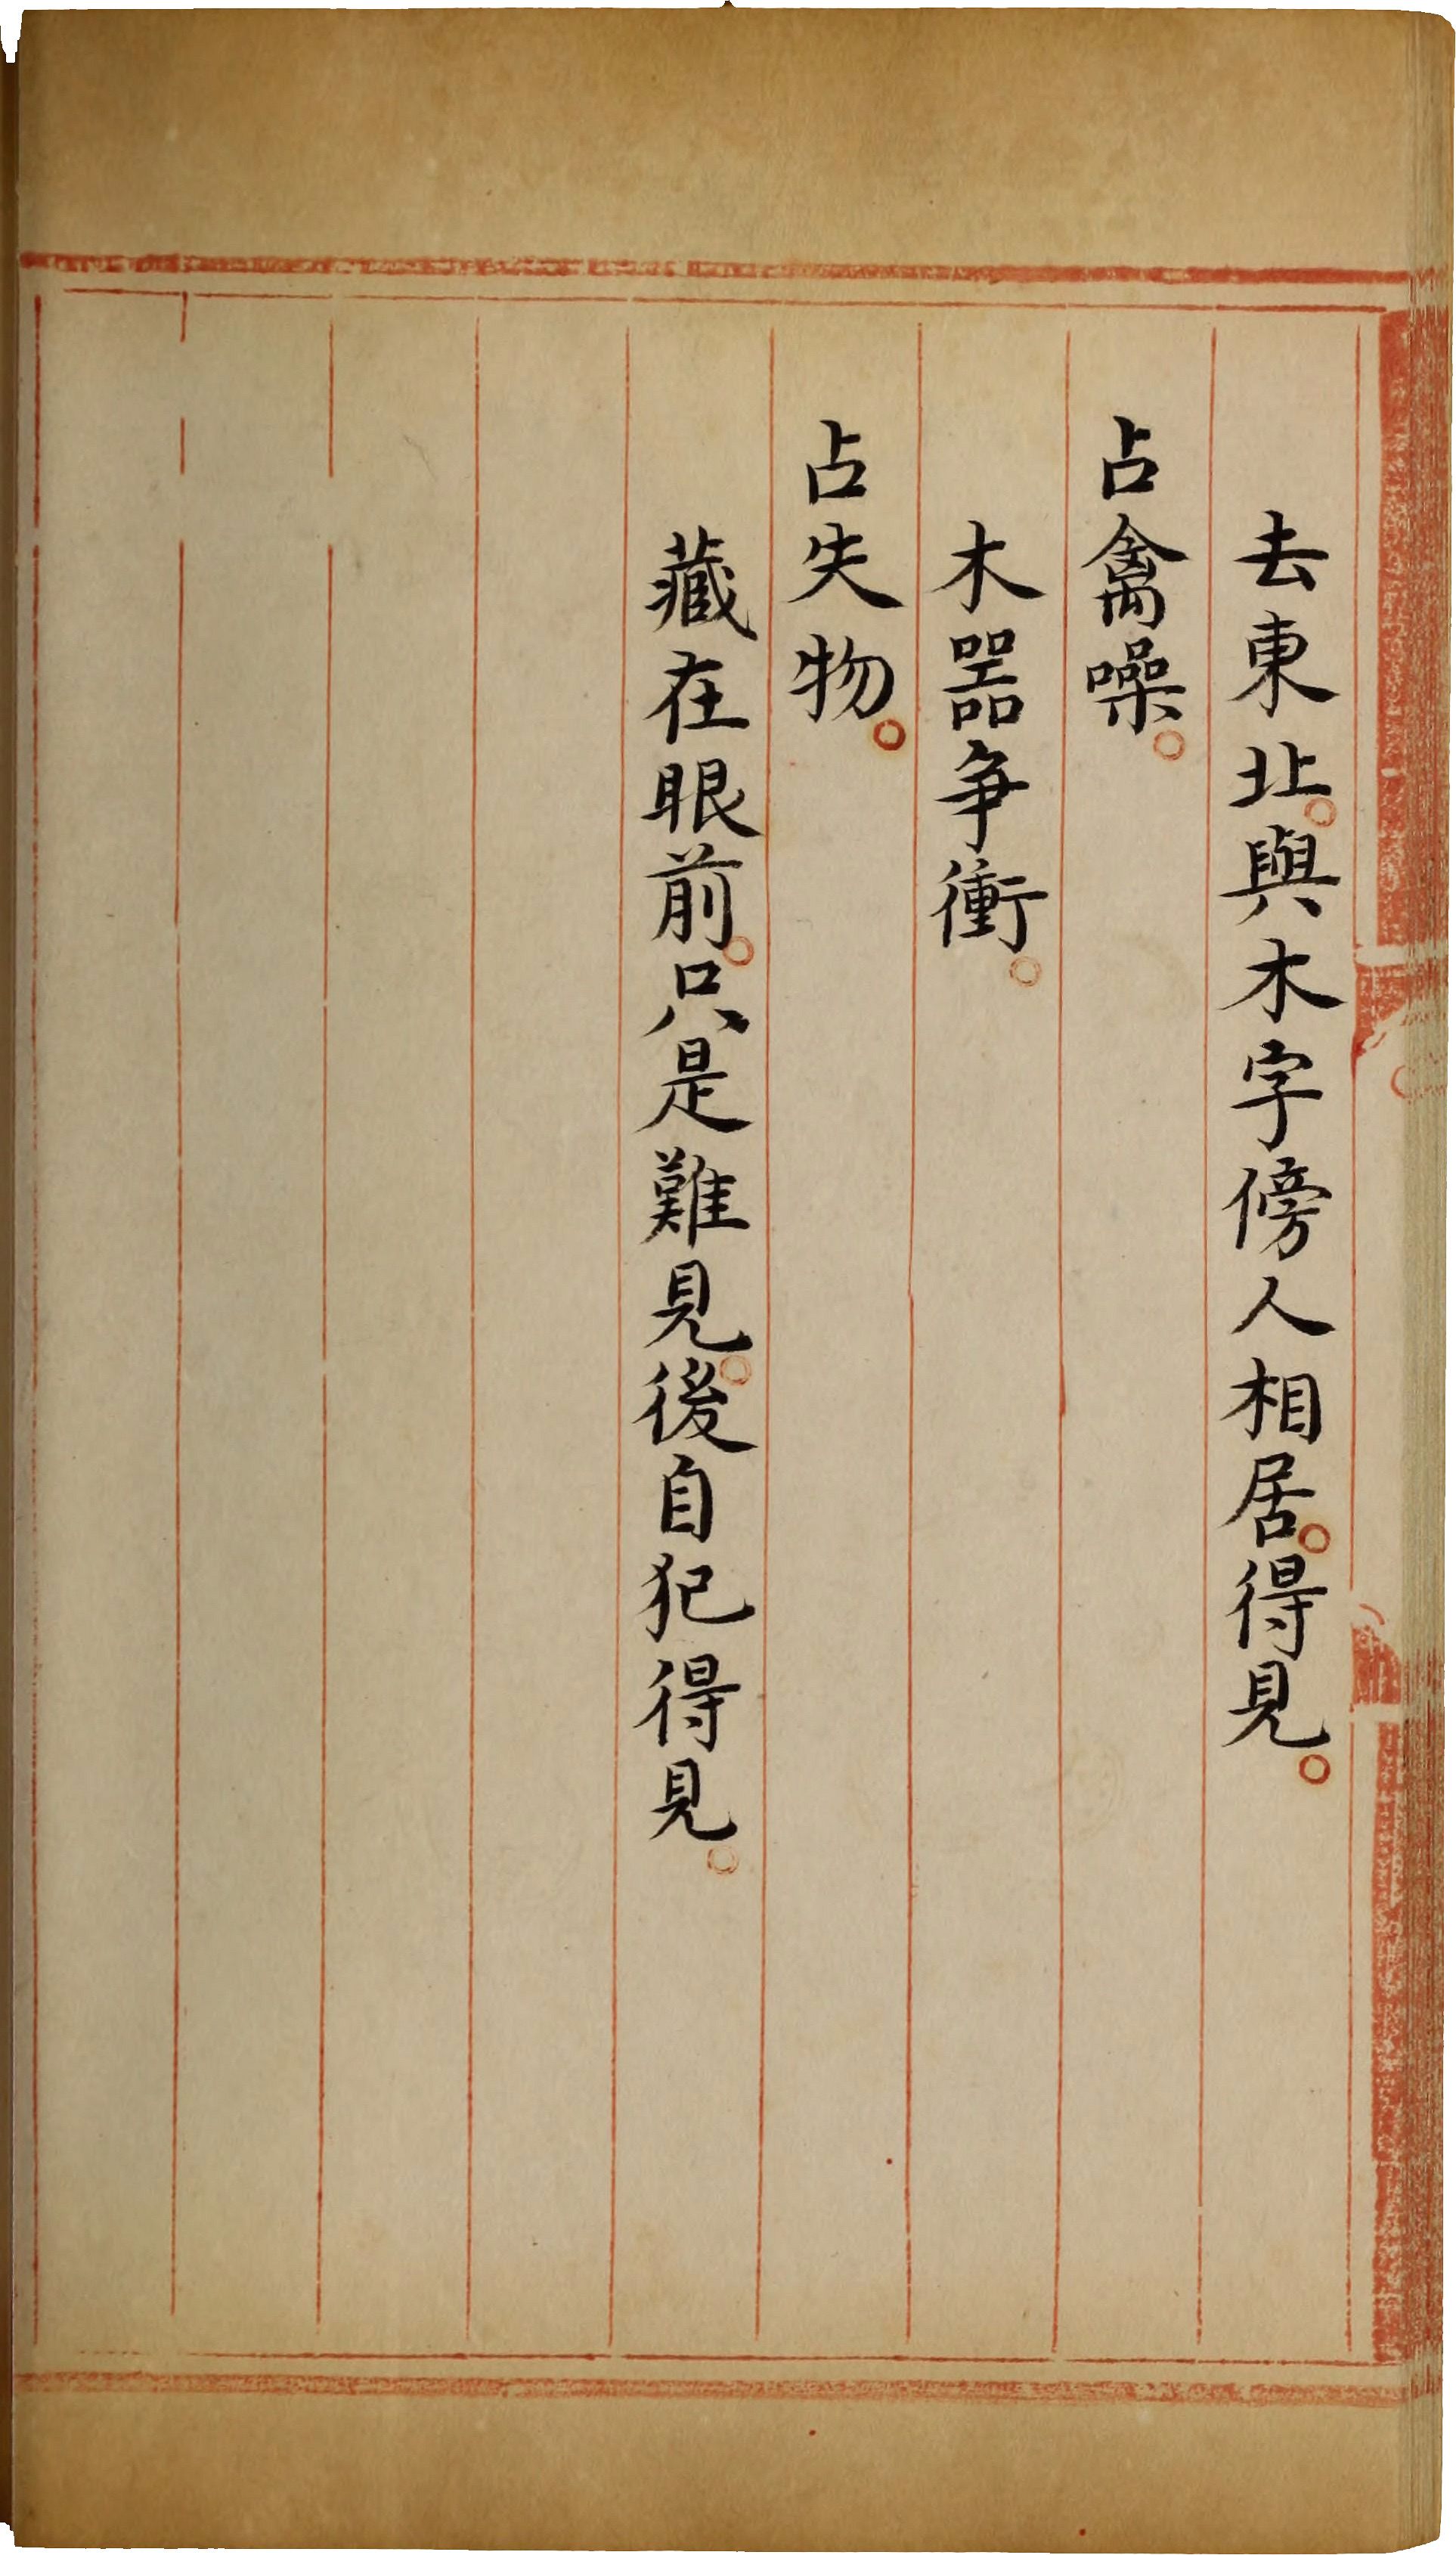 去東北。與木字傍人相居。得見。
占禽噪。
木器爭衝。
占失物。
藏在眼前。只是難見。後自犯得見。